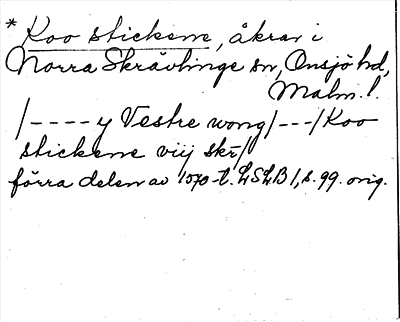 * Koo stickene, åkrar i
Norra Skrävlinge sn, Onsjö hd,
Malm. l.
/---- y Vestre wong/---/Koo
stickene viij skr/
förra delen av 1570-t. LSLB 1, s. 99. orig.